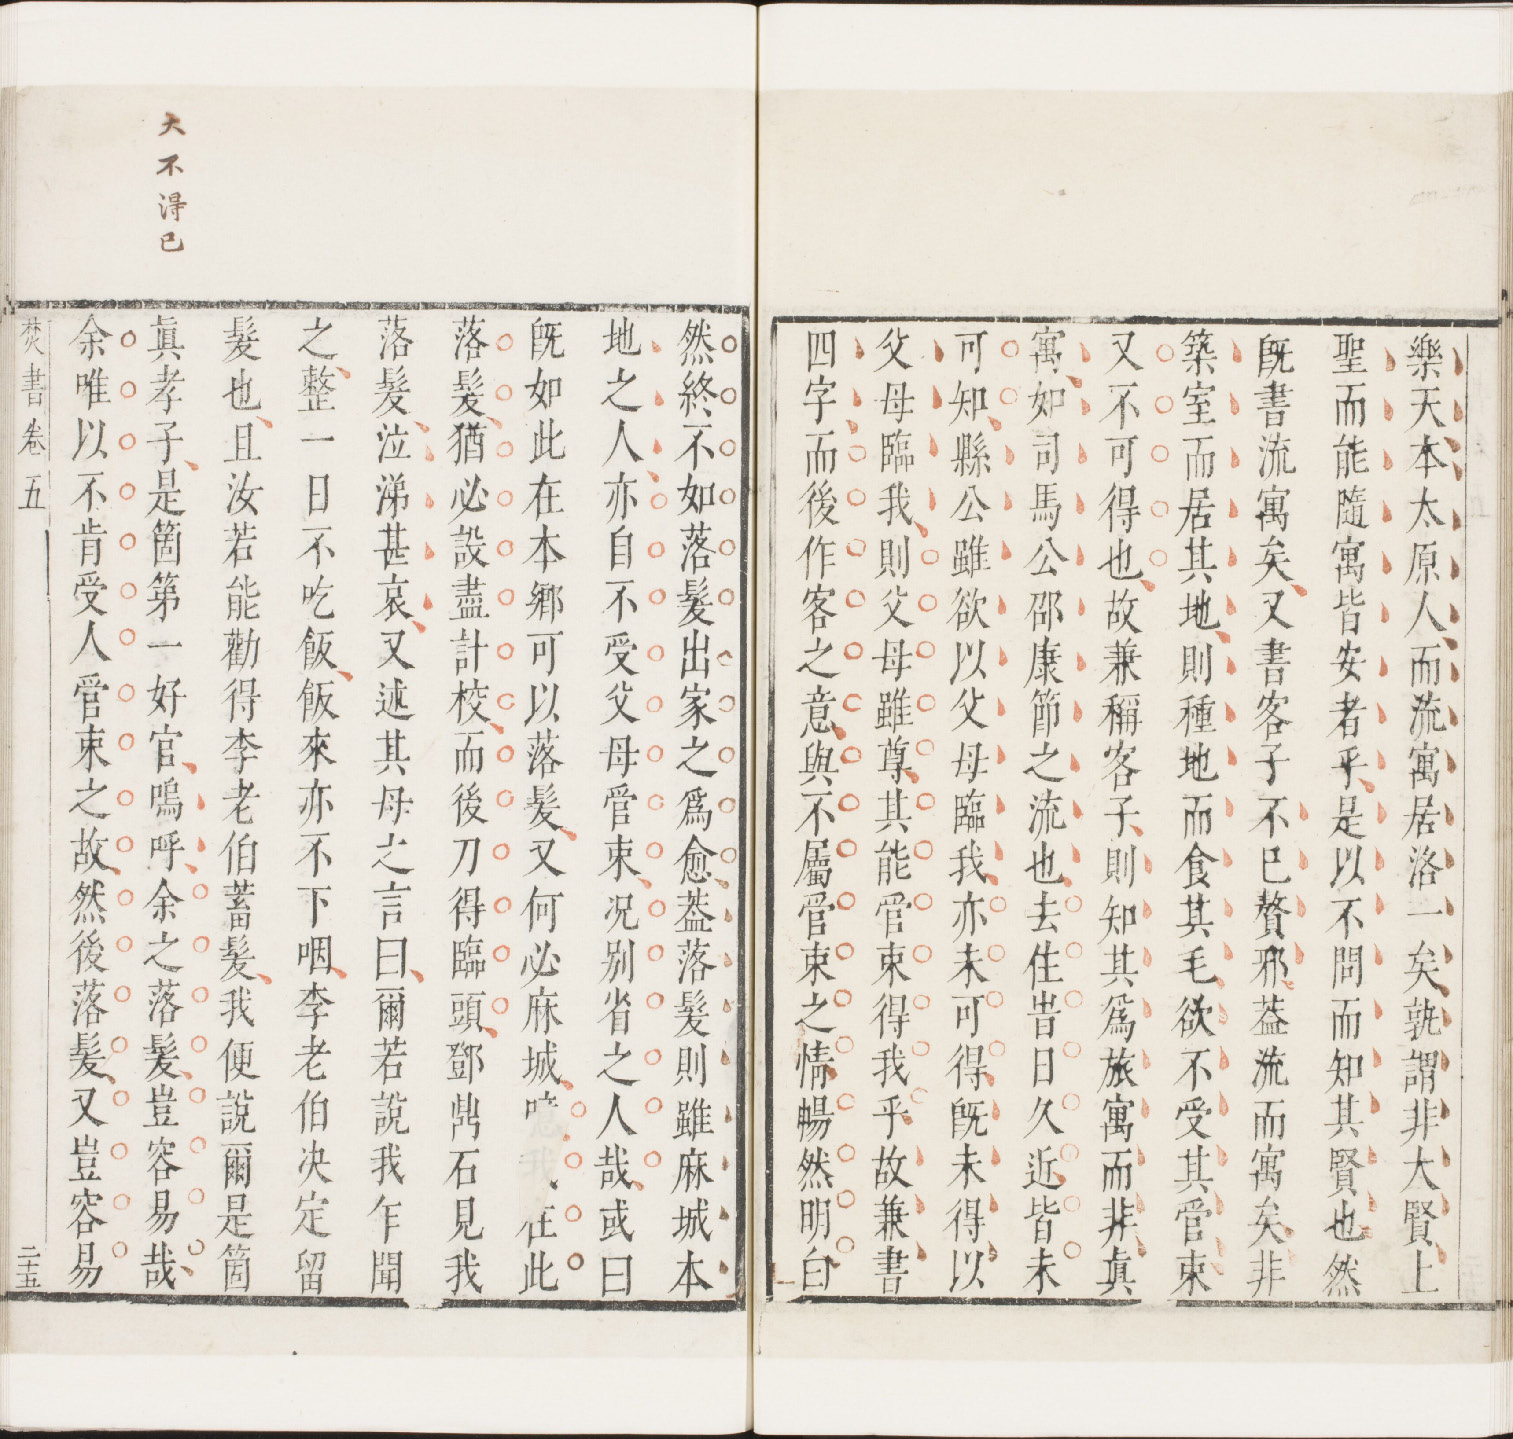 樂天本太原人而流寓居洛一矣孰謂非大賢上
聖而能隨寓皆安者乎是以不問而知其賢也然
既書流寓矣又書客子不已贅邪葢流而寓矣非
築室而居其地則種地而食其毛欲不受其管束
又不可得也故兼稱客子則知其爲旅寓而非眞
寓如司馬公邵康節之流也去住皆日久近皆未
可知縣公雖欲以父母臨我亦未可得既未得以
父母臨我則父母雖尊其能管束得我乎故兼書
四字而後作客之意與不屬管束之情暢然明白
然終不如落髮出家之爲愈葢落髮則雖麻城本
地之人亦自不受父母管束况别省之人哉或曰
既如此在本鄉可以落髮又何必麻城噫我在此
落髮猶必設盡計校而後刀得臨頭鄧鼎石見我
落髮泣涕甚哀又述其母之言曰爾若說我乍聞
之整一日不吃飯飯來亦不下咽李老伯决定留
髮也且汝若能勸得李老伯蓄髮我便說爾是箇
眞孝子是箇第一好官嗚呼余之落髮豈容易哉
余唯以不肯受人管束之故然後落髮又豈容易
焚書卷五
二十五
大不得已